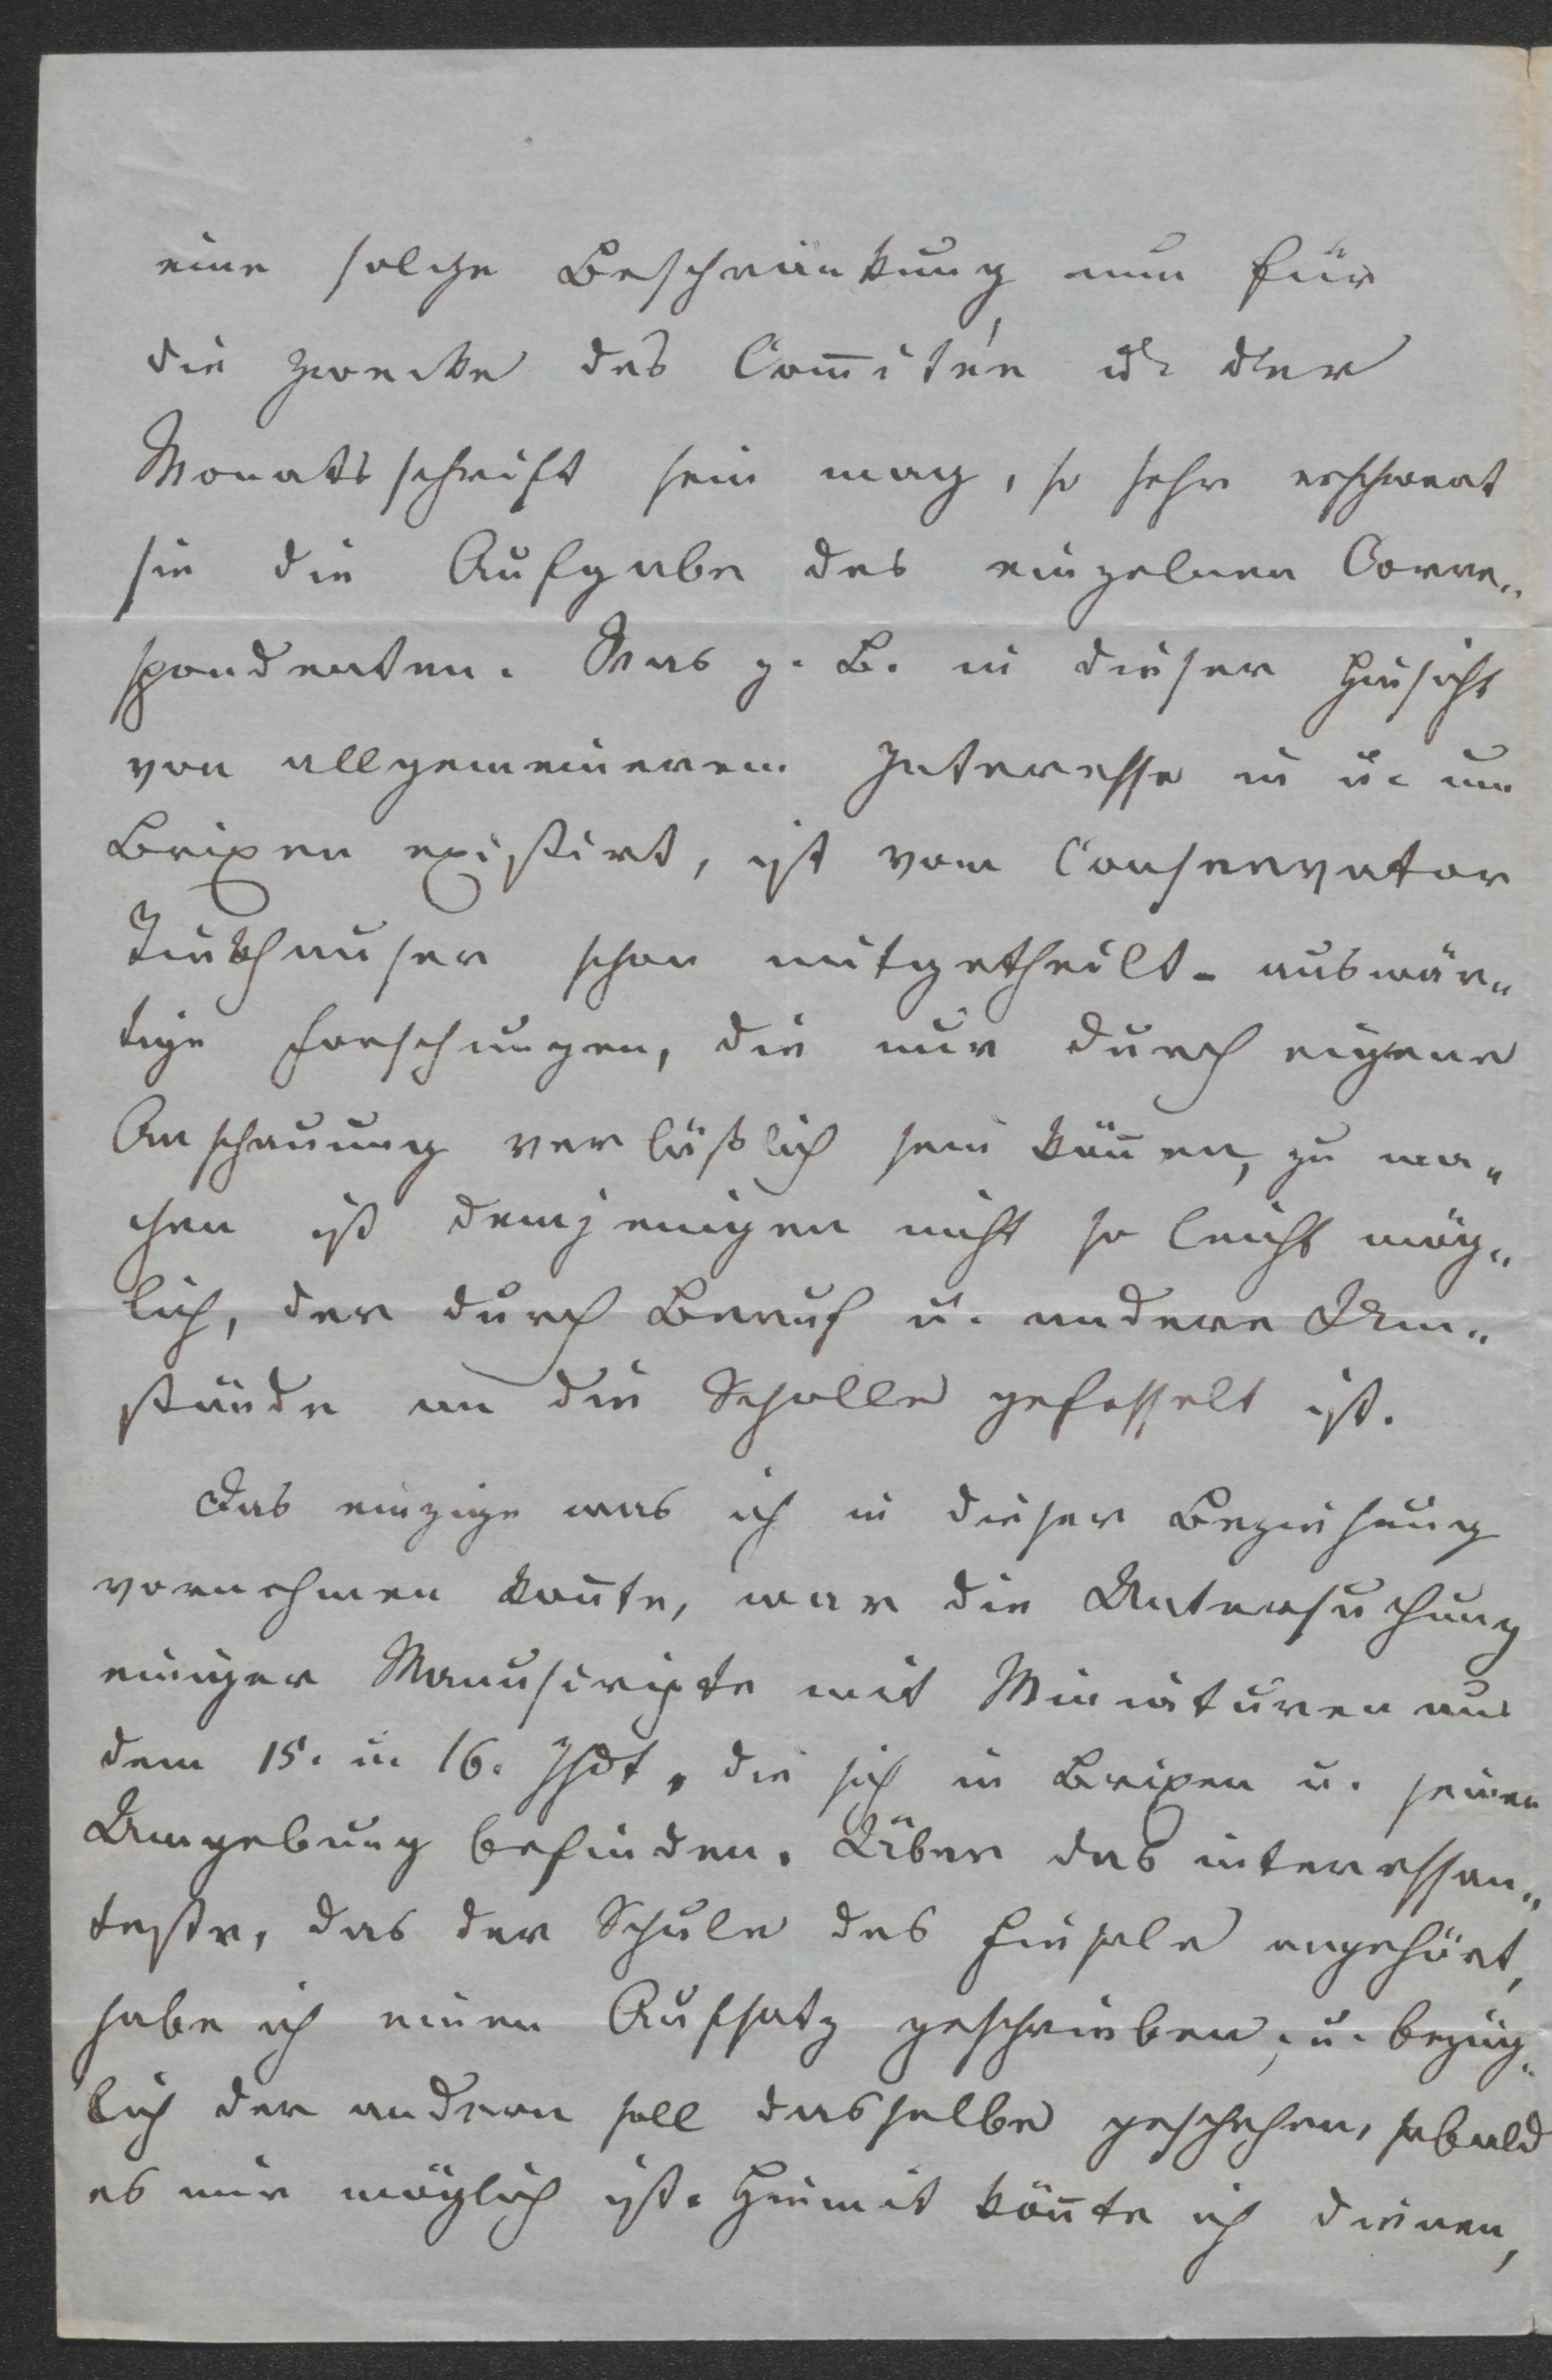 eine solche Beschränkung nun für
die Zwecke des Com̄itée u. der
Monatsschrift sein mag, so sehr erschwert
sie die Aufgabe des einzelnen Corre„
spondenten. Was z. B. in dieser Hinsicht
von allgemeinerem Interesse in u. um
Brixen existirt, ist vom Conservator
Tinkhauser schon mitgetheilt – auswär„
tige Forschungen, die nur durch eigene
Anschauung verläßlich sein kön̄en, zu ma„
chen ist demjenigen nicht so leicht mög„
lich, der durch Beruf u. andere Um„
stände an die Scholle gefesselt ist.
Das einzige was ich in dieser Beziehung
vornehmen kon̄te, war die Untersuchung
einiger Manuscripte mit Miniaturen aus
dem 15. u. 16. Jhdt, die sich in Brixen u. seiner
Umgebung befinden. Über das interessan„
teste, das der Schule des Fiesole angehört,
habe ich einen Aufsatz geschrieben, u. bezüg„
lich der andern soll dasselbe geschehen, sobald
es mir möglich ist. Hiemit kön̄te ich dienen,